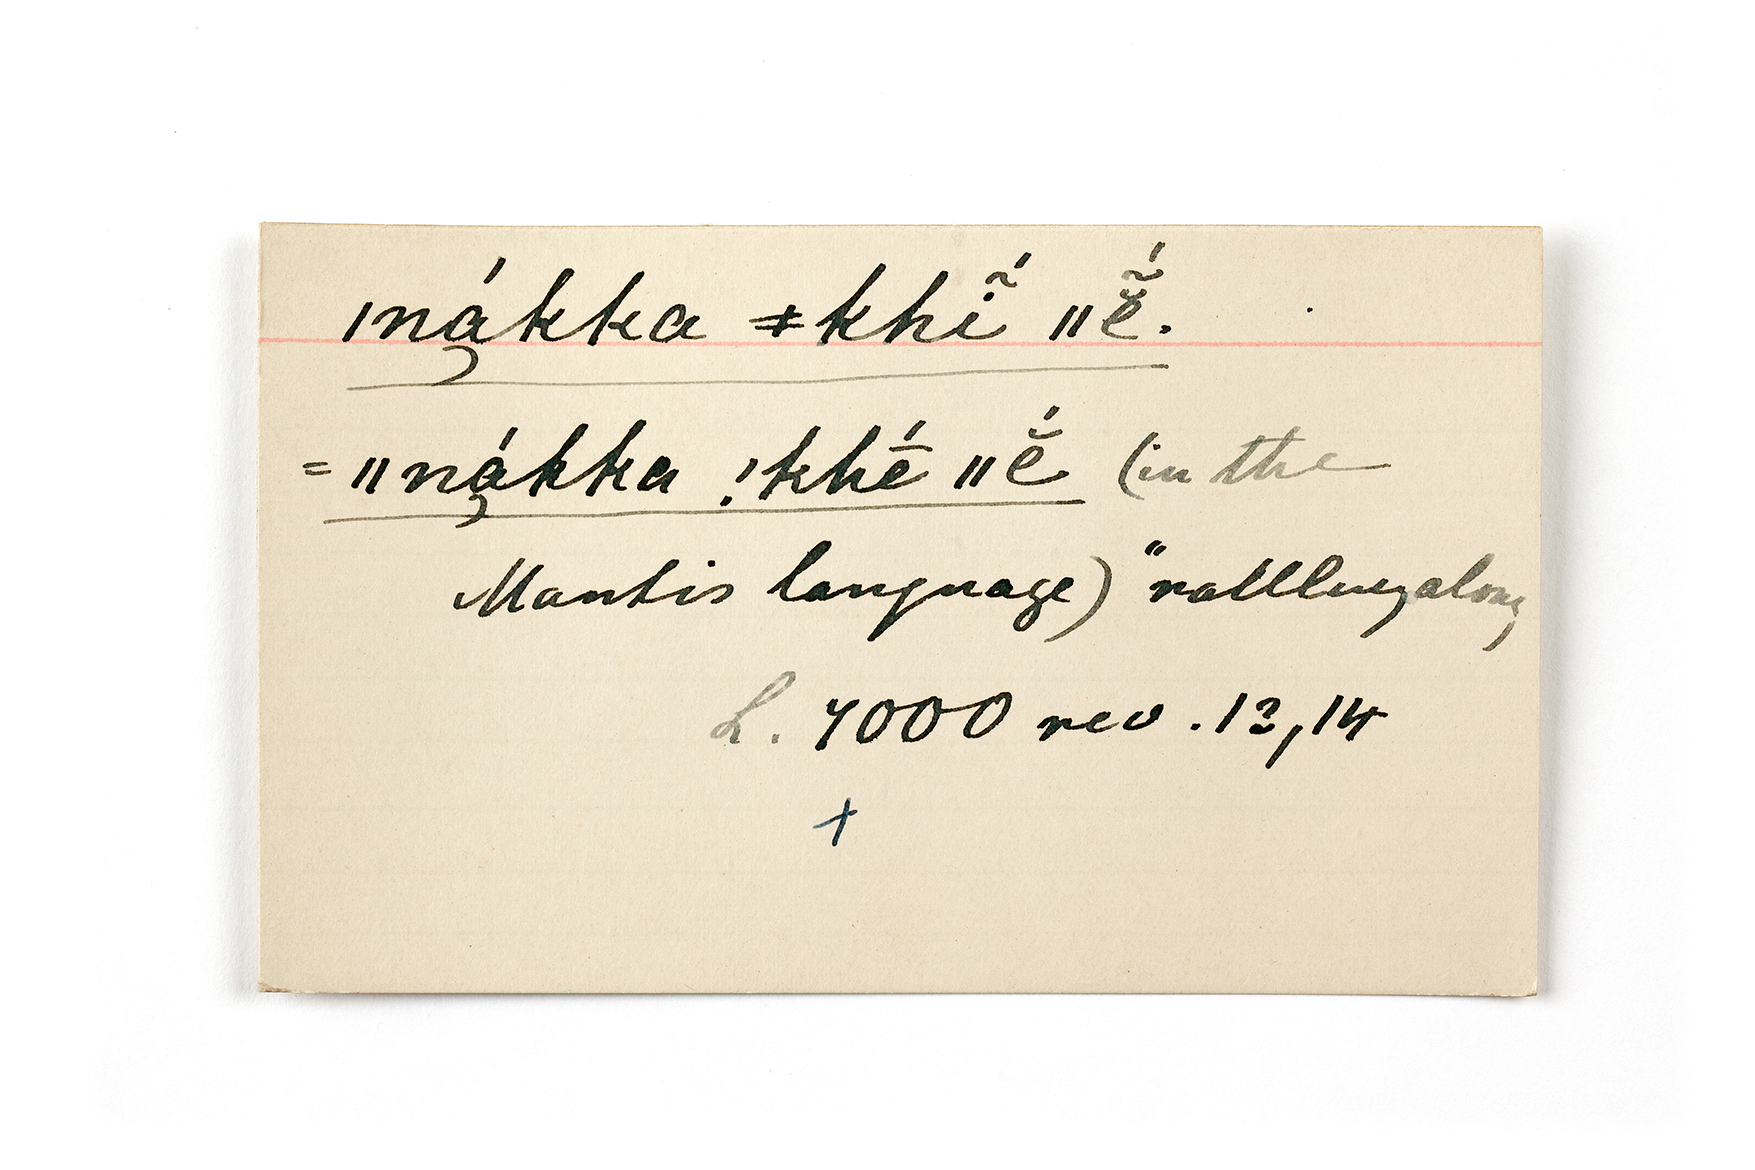 ǀná̦kka ǂkhĩ́ ǁẽ̆́.
= ǁná̦kka ǃkhḗ ǁĕ́ (in the
Mantis language) "rattling along
L. 7000 rev. 13, 14
+